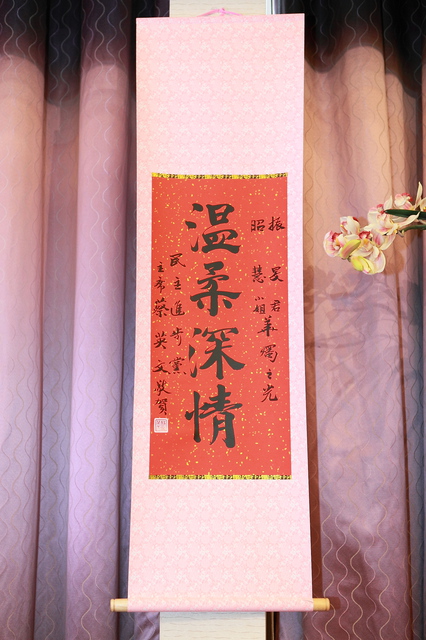 振旻君
昭慧小姐華燭之光
溫柔深情
民主進步黨
主席蔡英文敬賀